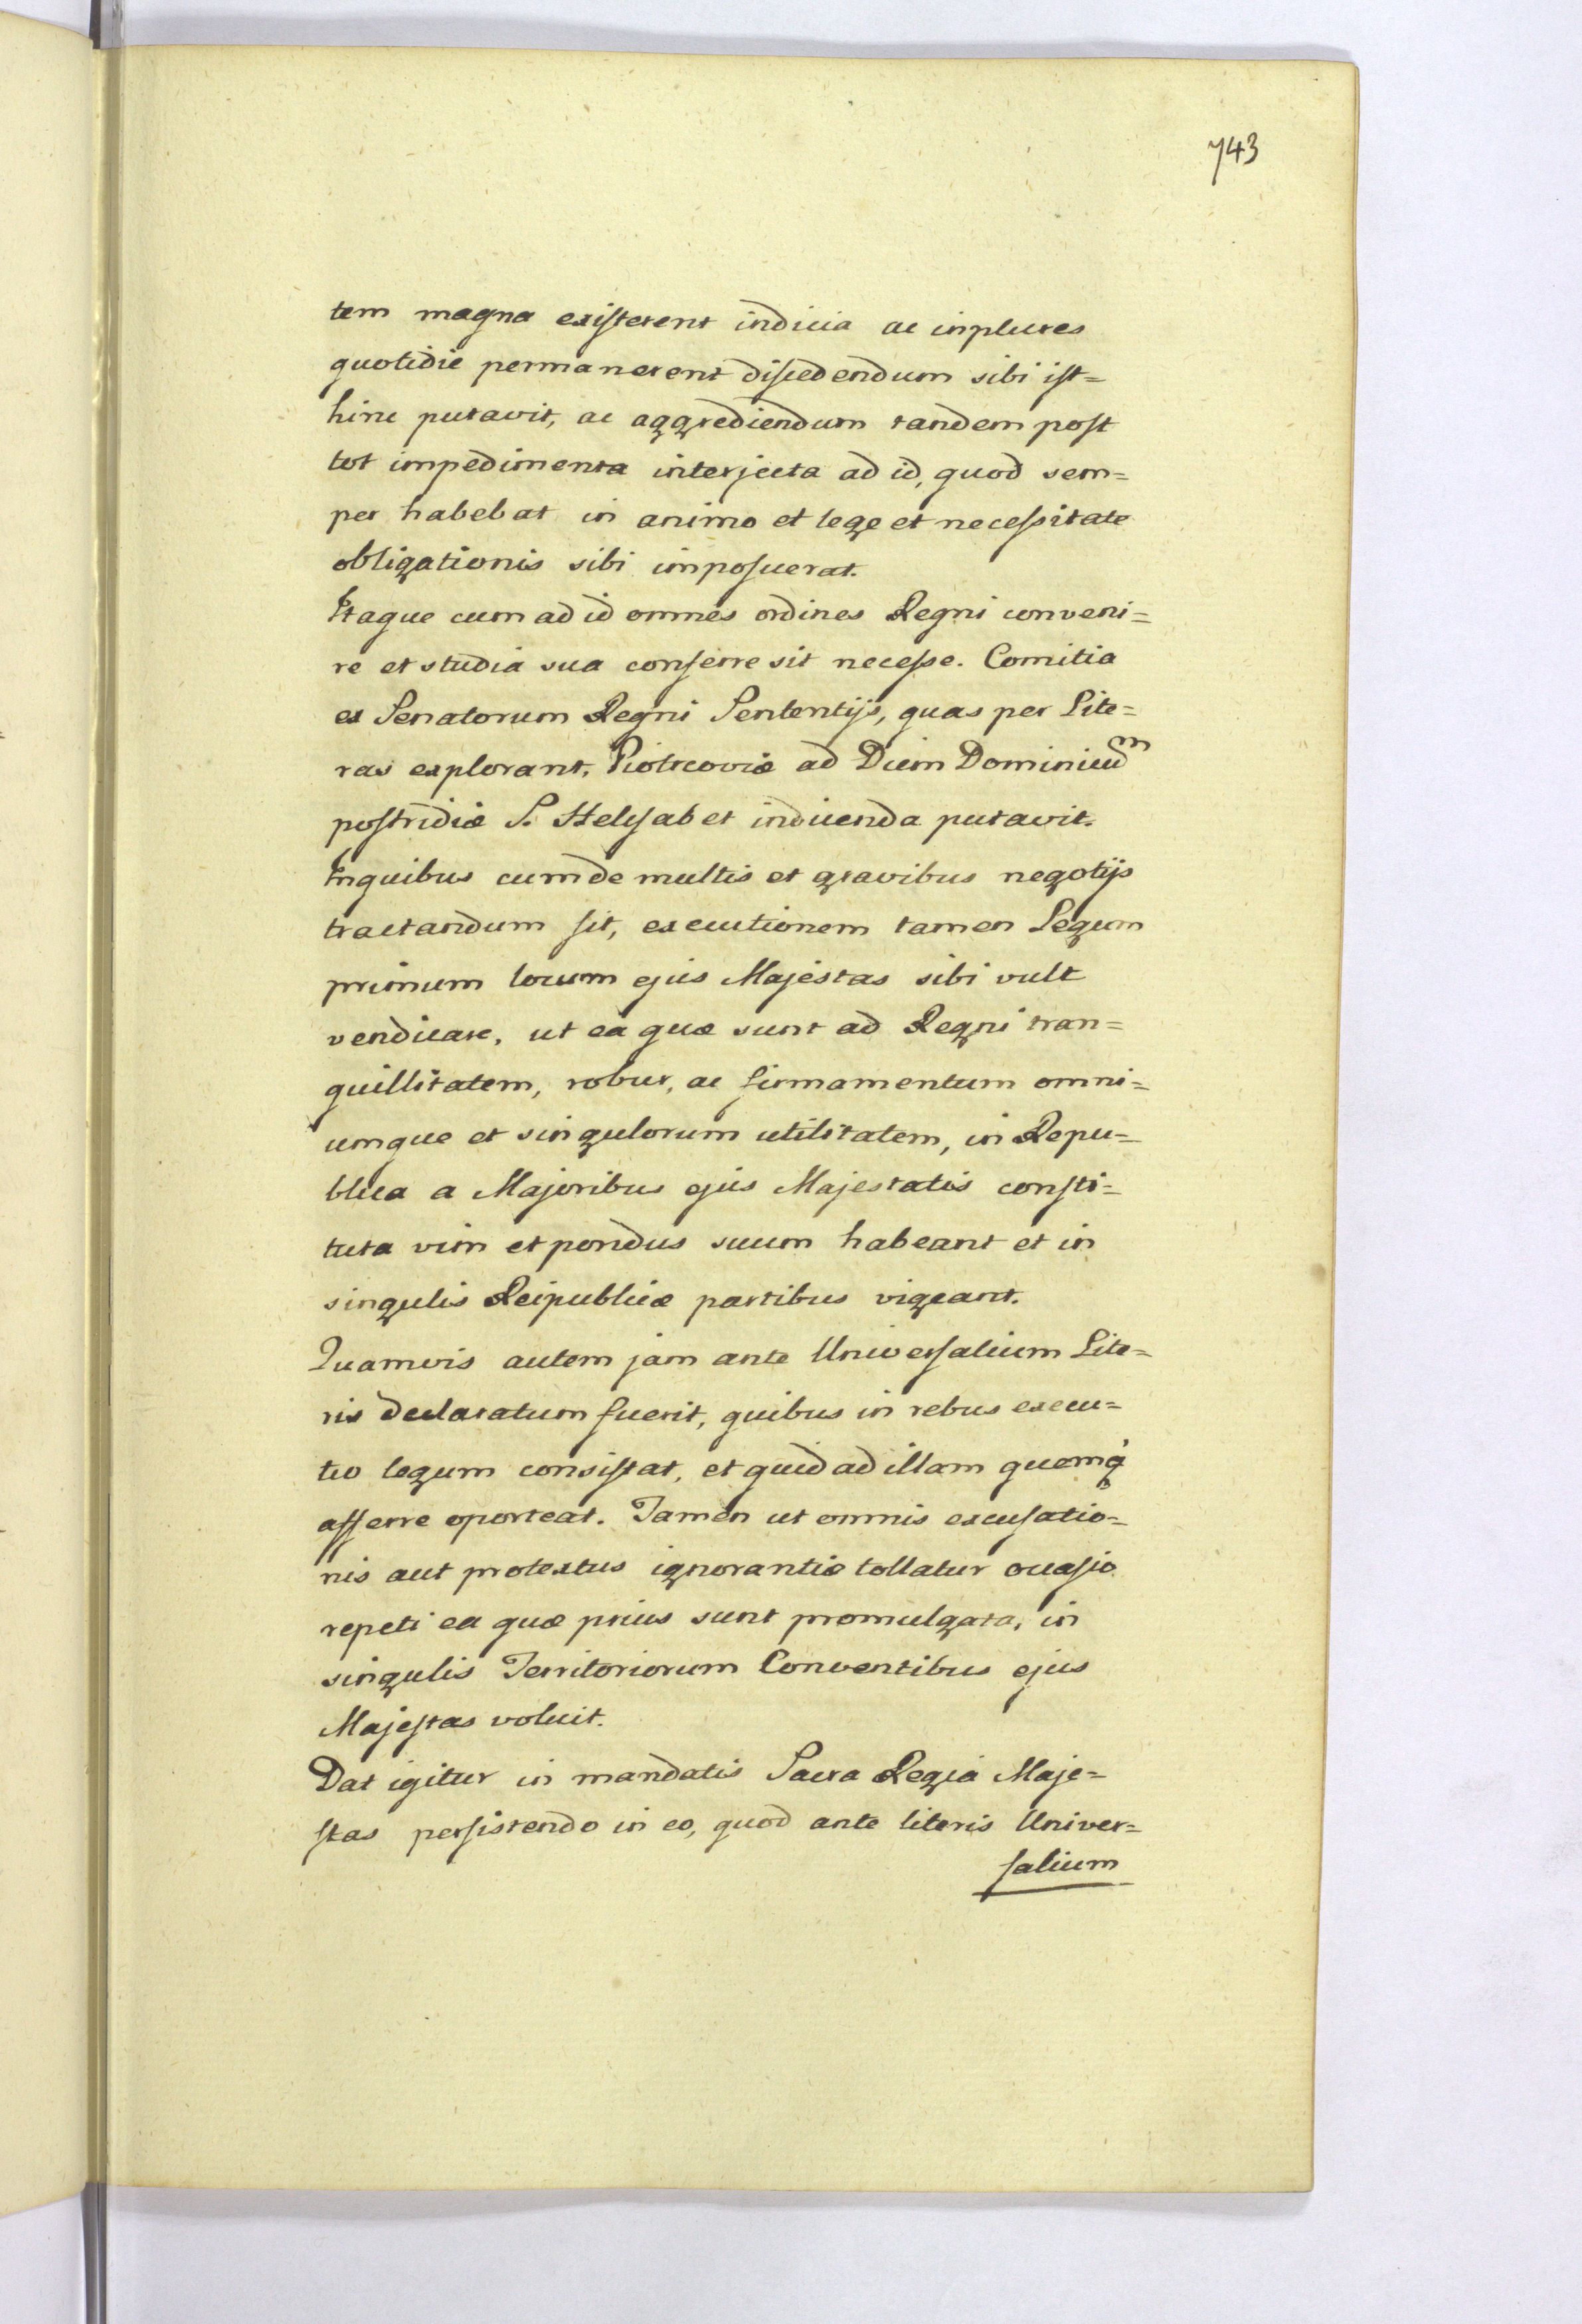 743
tem magna existerent indicia ac inplures
quotidie permanerent discedendum sibi ist=
hinc putavit, ac aggrediendum tandem post
tot impedimenta interjecta ad id, quod sem=
per habebat in animo et lege et necessitate
obligationis sibi imposuerat.
Itaque cum ad id omnes ordines Regni conveni=
re et studia sua conferre sit necesse. Comitia
ex Senatorum Regni Sententijs, quas per Lite=
ras explorant, Piotrcoviæ ad Diem Dominicum
postridiæ S. Helisabet indicenda putavit.
Inquibus cum de multis et gravibus negotijs
tractandum sit, executionem tamen Legum
primum locum ejus Majestas sibi vult
vendicare, ut ea quæ sunt ad Regni tran=
quillitatem, robur, ac firmamentum omni=
umque et singulorum utilitatem, in Repu=
blica a Majoribus ejus Majestatis consti=
tuta vim et pondus suum habeant et in
singulis Reipublicæ partibus vigeant.
Quamvis autem jam ante Universalium Lite=
ris declaratum fuerit, quibus in rebus execu=
tio legum consistat, et quid ad illam quemq́
afferre oporteat. Tamen ut omnis excusatio=
nis aut protextus ignorantiæ tollatur occasio
repeti ea quæ prius sunt promulgata, in
singulis Territoriorum Conventibus ejus
Majestas voluit.
Dat igitur in mandatis Sacra Regia Maje=
stas persistendo in eo, quod ante literis Univer=
salium